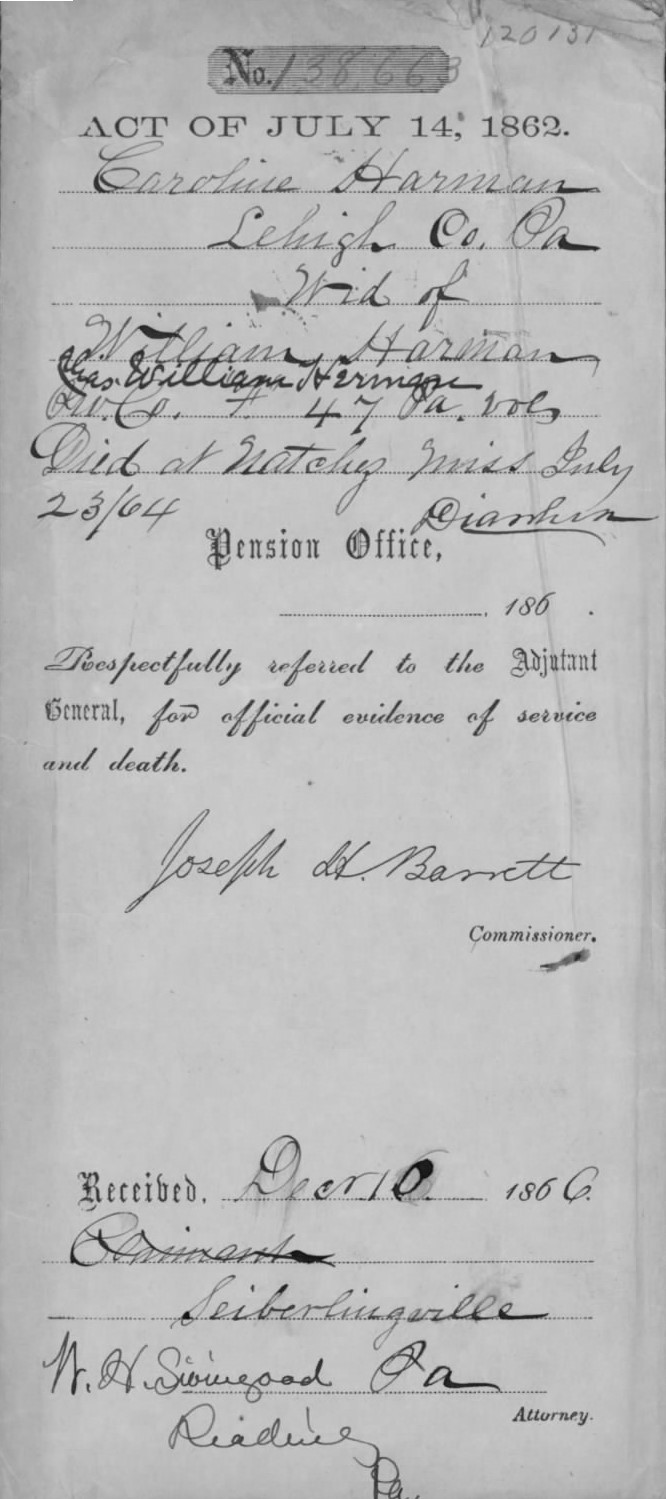 120131
No. 138,663
ACT OF JULY 14, 1862.
Caroline Harman
Lehigh Co. Pa
Wid of
William Harman
Chas. William Herman
Pvt. Co. F. 47 Pa. vols
Died at Natchez Miss July
23/64 Diarrhea
Pension Office,
186 .
Respectfully referred to the Adjutant
General, for official evidence of service
and death.
Joseph H. Barrett
Commissioner.
Received, Decr 10 1866.
Claimant
Seiberlingville
W. H. Pa
Attorney.
Reading
Pa.